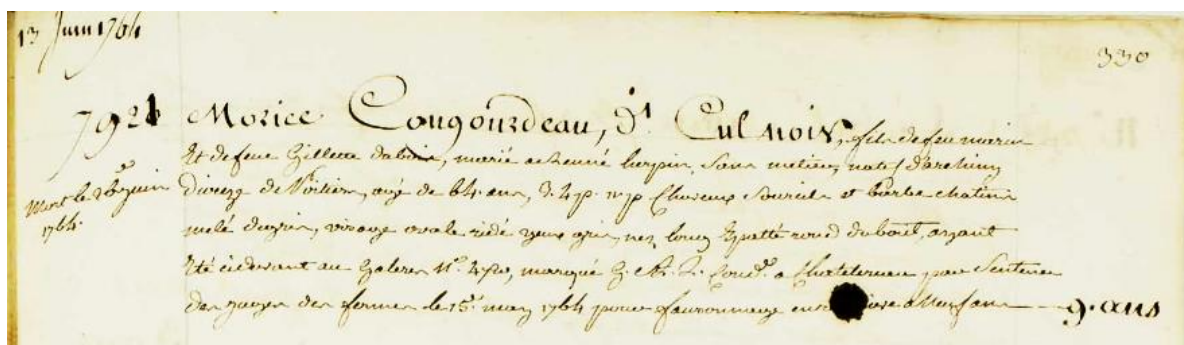 13 Juin 1764
330
7921 Morice Cougourdeau, dt. Cul noir, fils de feu marin
Et de feue Gillette dubois, marié a Renée turpin, Sans metier, natif d'archiny
Mort le 26 juin 1764.
Dioceze de Poitiers, agé de 64. ans, 5. 4p. Cheveux Sourcils et barbe chatains
melé de gris, visage ovale ridé yeux gris, nez long Epatté rond du bout, ayant
Eté cidevant au Galeres N°. 420, marqué G. A. L. Cond. a Chatelereau, par Sentence
des juges des fermes le 15. mars 1764 pour fauxsonnage a Neuf ans 9. ans